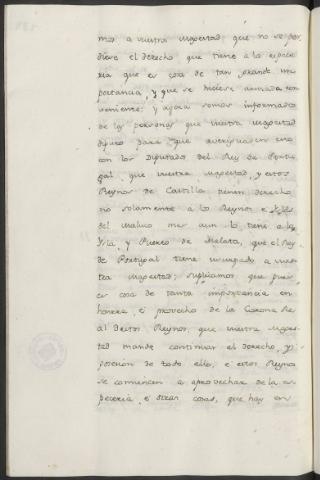 mos a vuestra magestad que no se per
diese el derecho que tiene a la espece
ria que es cosa de tan grande im
portancia, y que se hiciese armada con
veniente: y agora somos informados
de las personas que vuestra magestad
diputo para que averiguasen
con los Diputados del Rey de Portu
gal, que vuestra magestad, y estos
Reynos de Castilla tienen derecho
no solamente a los Reynos e Yslas
del Maluco mas aun lo tiene a la
Ysla, y Puerto de Malaca, que el Rey
de Portugal tiene usurpado a vues
tra magestad; suplicamos que pues
es cosa de tanta importancia en
honrra, é provecho de la Corona Re
al destos Reynos, que vuestra mages
tad mande continuar el derecho, y
posesion de todo ello, e estos Reynos
se comiencen a aprovechar de la es
peceria, é otras cosas, que hay en